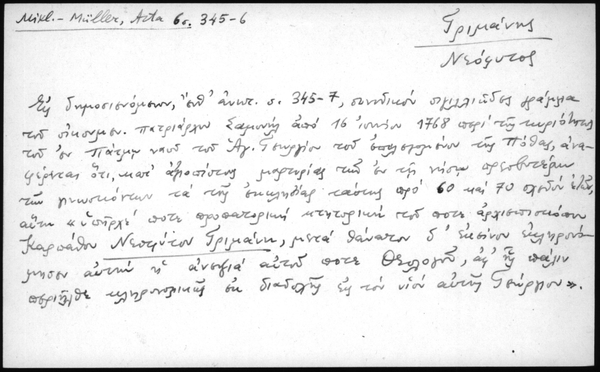 Mikl.- Müller, Acta 6 σ. 345-6
Γριμάνης
Νεόφυτος
Εἰς δημοσιευόμενον, ἔνθ' ἀνωτ. σ. 345-7, συνοδικὸν σιγιλλιῶδες γράμμα
τοῦ οἰκουμεν. πατριάρχου Σαμουὴλ ἀπὸ 16 ἰουνίου 1768 περὶ τῆς κυριότητος
τοῦ ἐν Πάτμῳ ναοῦ τοῦ Ἁγ. Γεωργίου τοῦ ἐπιλεγομένου τῆς Πόθας, ἀνα-
φέρεται ὅτι, κατ' ἀξιοπίστους μαρτυρίας τῶν ἐν τῇ νήσῳ πρεσβυτέρων
τῶν γινωσκόντων τὰ τῆς ἐκκλησίας ταύτης πρὸ 60 καὶ 70 σχεδὸν ἐτῶν,
αὕτη «ὑπῆρχέ ποτε προπατορικὴ κτητορικὴ τοῦ ποτε ἀρχιεπισκόπου
Καρπάθου Νεοφύτου Γριμάνη, μετὰ θάνατον δ' ἐκείνου ἐκληρονό-
μησεν αὐτὴν ἡ ἀνεψιὰ αὐτοῦ ποτε Θεολογοῦ, ἀφ' ἧς πάλιν
περιῆλθε κληρονομικῶς ἐκ διαδοχῆς εἰς τὸν υἱὸν αὐτῆς Γεώργιον».